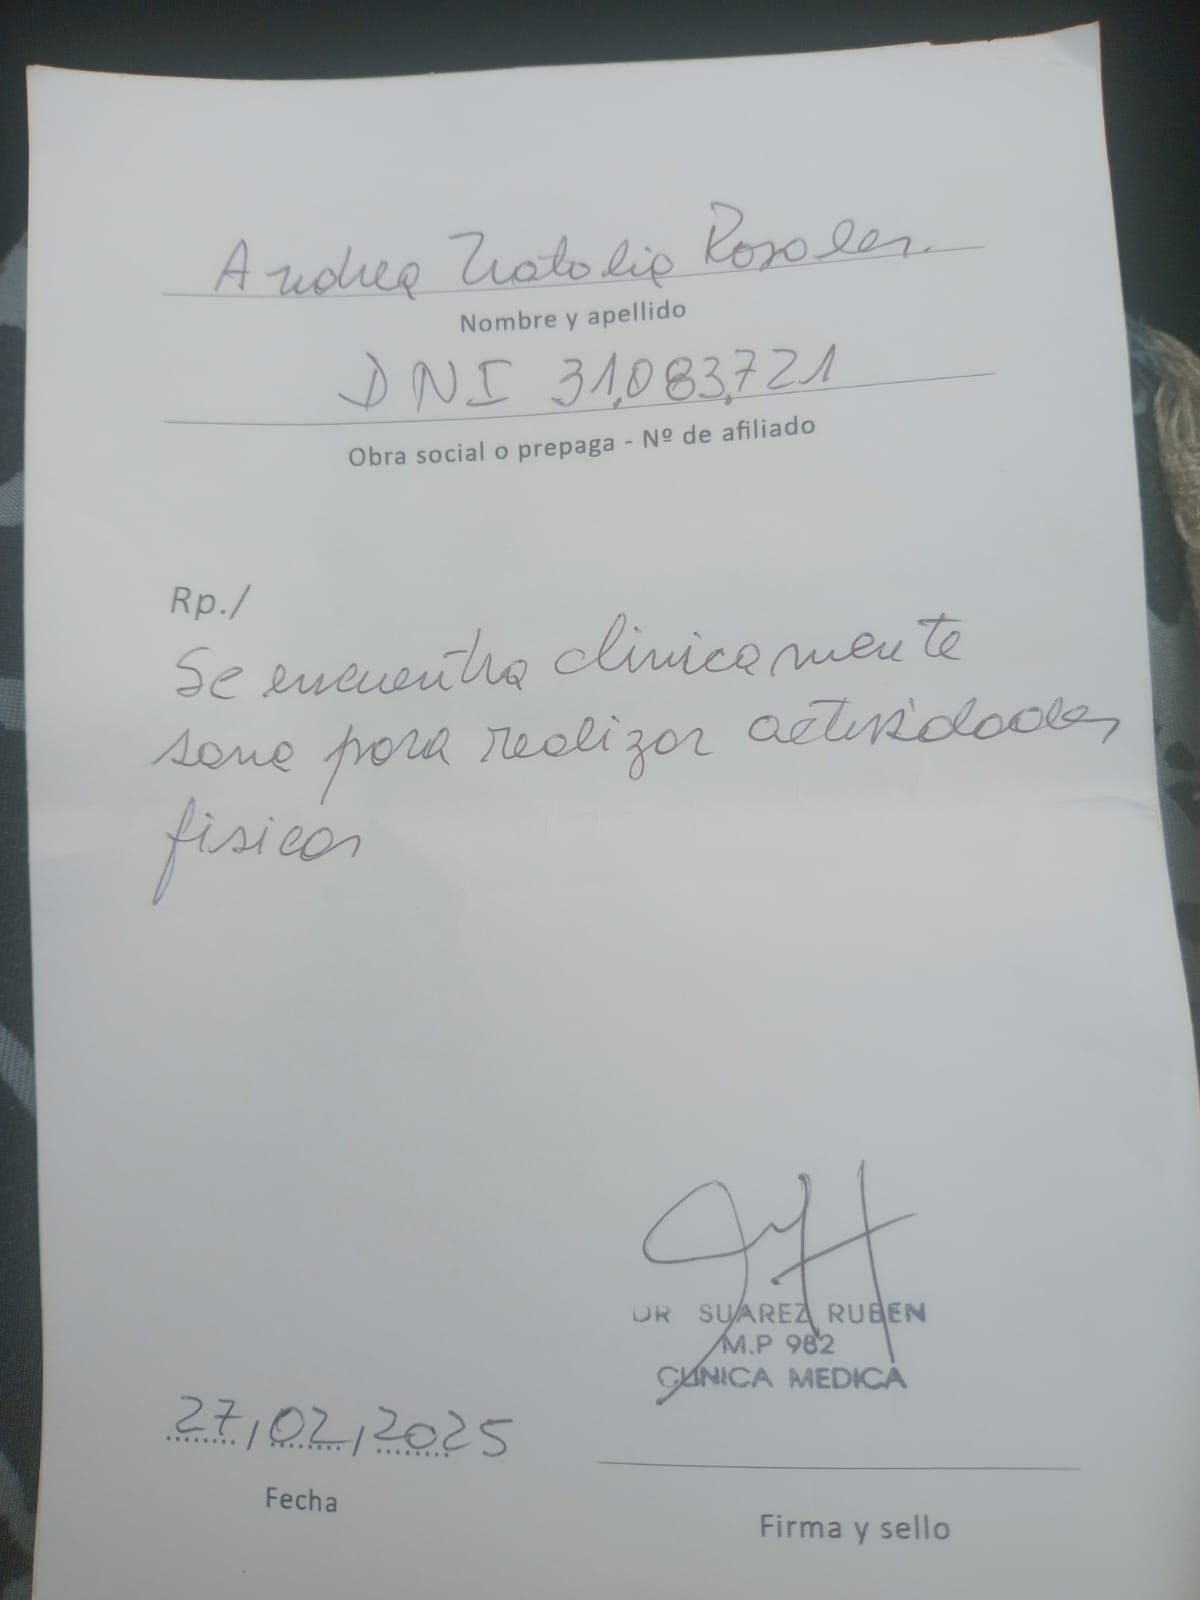 Andrea Natalia Rosales.
Nombre y apellido
DNI 31,083,721
Obra social o prepaga - Nº de afiliado
Rp./
Se encuentra clinicamente
sana para realizar actividades
fisicas
DR SUAREZ RUBEN
M.P 982
CLINICA MEDICA
27/02/2025
Fecha
Firma y sello